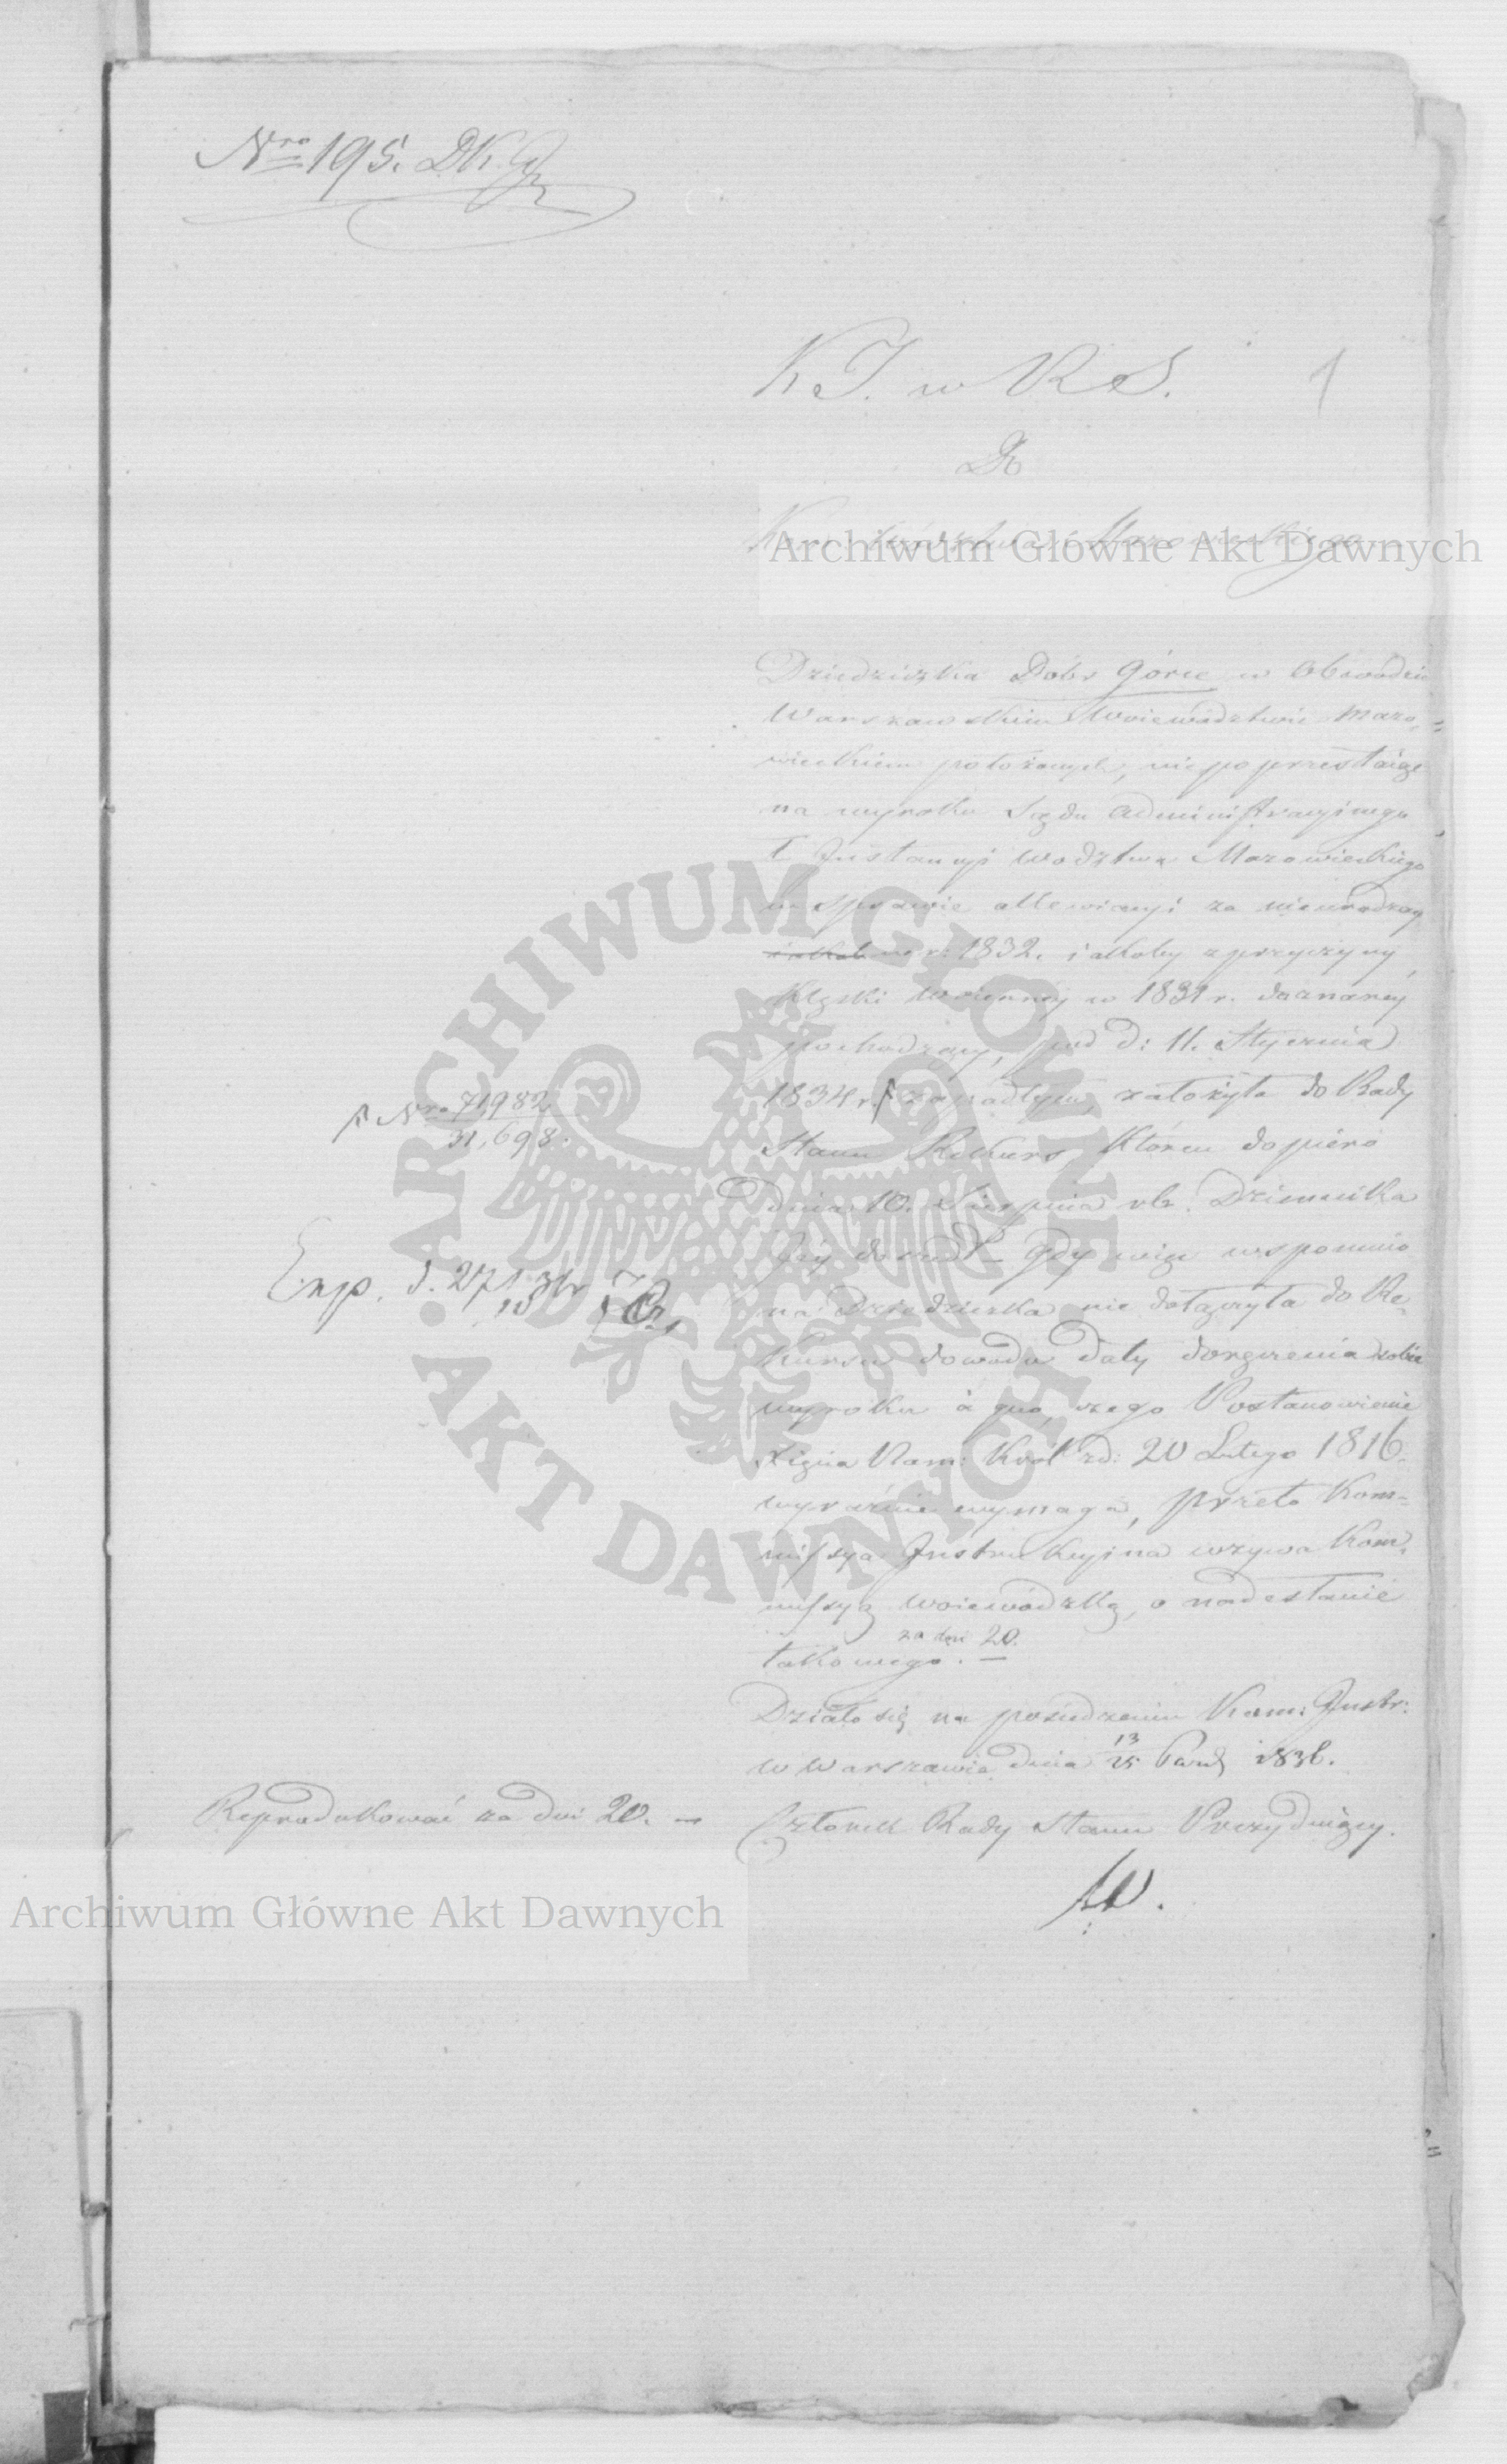 Nro 195. DKG
K. I. w R S.
1
Do
Kom: Wództwa Mazowieckiego
Archiwum Główne Akt Dawnych
Dziedziczka Dóbr Górce w Obwodzie
Warszawskim Woiewództwie Mazo-
wieckiem położonych, niepoprzestaiąc
na wyroku Sądu Administracyinego
I Instancyi Wodztwa Mazowieckiego
w sprawie allewiacyi za nieurodzay
w r: 1832. iakoby z przyczyny
klęski woienney w 1831 r. doznaney
pochodzący, pod d: 11. Stycznia
1834 r. zapadłym, założyła do Rady
Nro 71,982
31,698.
Stanu Rekurs, który dopiero
dnia 10. Sierpnia rb. Dziennika
Exp. d. 27
Jéy doszedł. Gdy więc wspomnio
na Dziedziczka nie dołączyła do Re-
kursu dowodu daty doręczenia sobie
wyroku à quo, czego Postanowienie
Xięcia Nam: Król: z d: 20 Lutego 1816.
wyraźnie wymaga, przeto Kom-
missya Instrukcyina wzywa Kom-
missyą Woiewódzką, o nadesłanie
za dni 20.
takowego. —
Działo się na posiedzeniu Kom: Instr:
w Warszawie dnia 13/25 Paźd 1836.
Reprodukować za dni 20. —
Członek Rady Stanu Prezyduiący.
Archiwum Główne Akt Dawnych
ARCHIWUM GŁÓWNE
AKT DAWNYCH